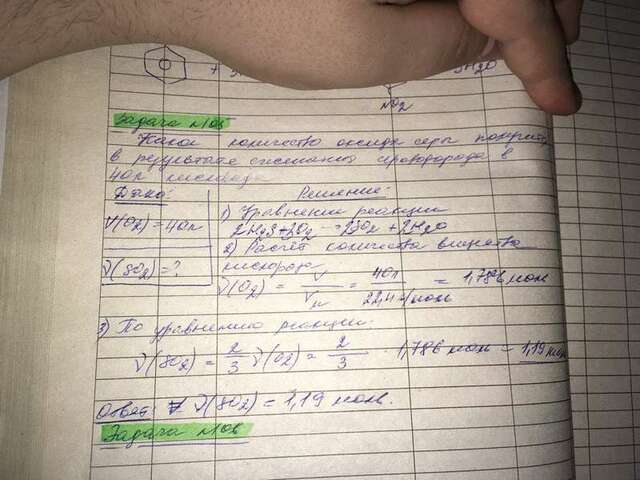 + 3H2O
NO2
Задача №105
Какое количество оксида серы получится
в результате сжигания сероводорода в
40л кислорода
Дано: Решение:
V(O2) = 40л 1) Уравнение реакции
2H2S + 3O2 = 2SO2 + 2H2O
2) Расчёт количества вещества
ν(SO2) = ? кислорода
ν(O2) = V / Vм = 40л / 22,4 л/моль = 1,786 моль
3) По уравнению реакции:
ν(SO2) = 2/3 ν(O2) = 2/3 · 1,786 моль = 1,19 моль
Ответ: ν(SO2) = 1,19 моль.
Задача №106